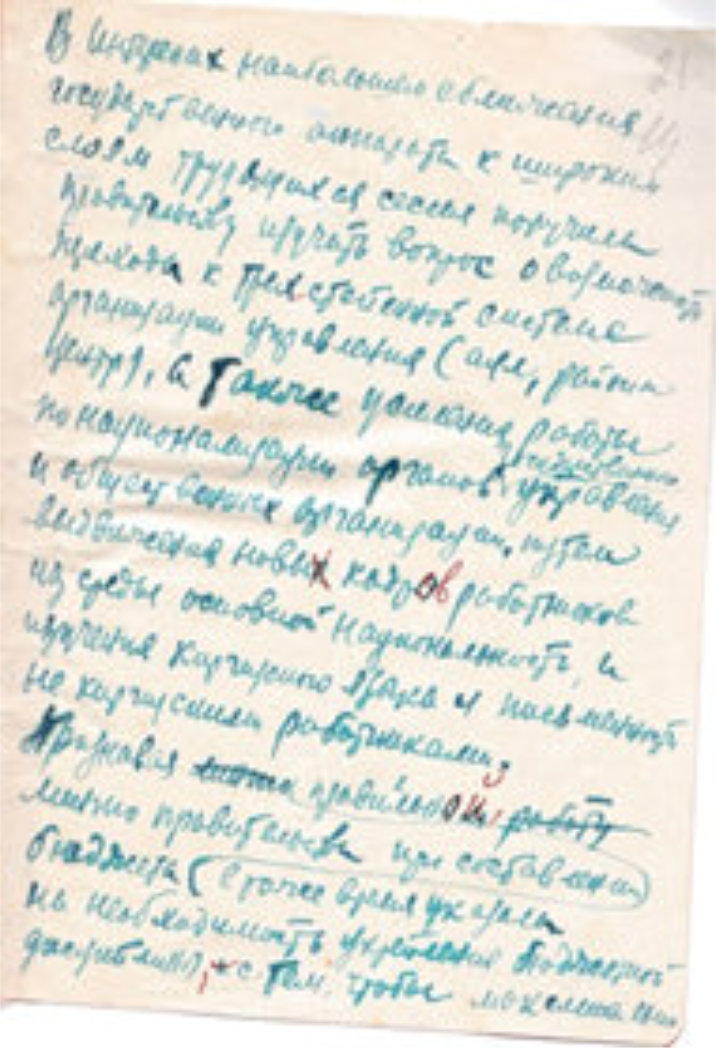 В интересах наибольшего сближения
государственного аппарата к широким
слоям трудящихся сессия поручила
правительству изучить вопрос о возможности
перехода к трехстепенной системе
организации управления (аил, район
центр), а также усиления работы
по национализации органов управления
и общественных организации, путем
выдвижения новых кадров работников
из среды основной национальности, и
изучения киргизского языка и письменности
не киргизскими работниками;
Признавая правильной работу
линию правительства при составлении
бюджета (в тоже время указала
на необходимость укрепления бюджетной
дисциплины, с тем, чтобы